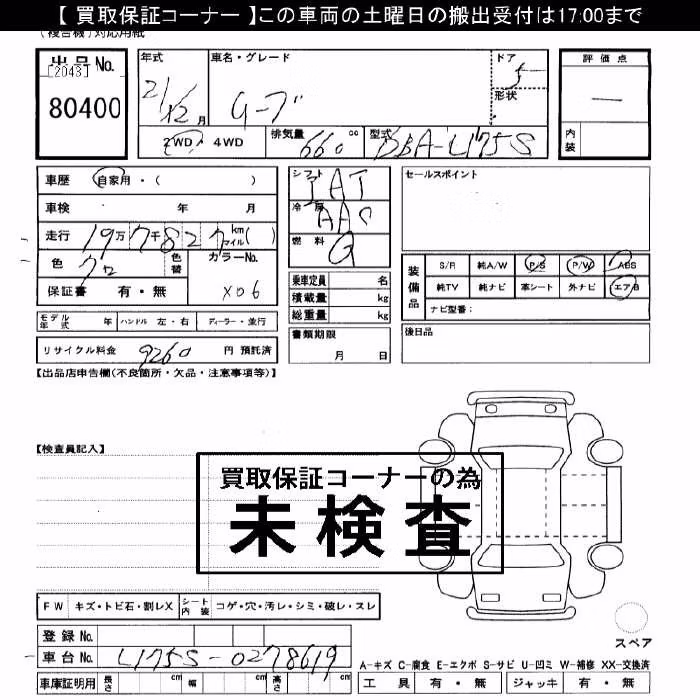 【 買取保証コーナー 】この車両の土曜日の搬出受付は17:00まで
(複合機)対応用紙
出品No. [2043] 80400
年式 21/12 月
車名・グレード
ドア 5
形状
2WD・4WD
排気量 660 cc
型式 DBA-L175S
評価点 —
内装
車歴 自家用・( )
車検 年 月
走行 19万7千827 km マイル( )
色 クロ 色替 カラーNo. X06
保証書 有・無
シフト IAT
冷房 AAC
燃料 G
乗車定員 名
積載量 kg
総重量 kg
書類期限 月 日
セールスポイント
装備品
S/R 純A/W P/S P/W ABS
純TV 純ナビ 革シート 外ナビ エアB
ナビ型番:
モデル年式 年 ハンドル 左・右 ディーラー・並行
リサイクル料金 9260 円 預託済
後日品
【出品店申告欄(不良箇所・欠品・注意事項等)】
【検査員記入】
買取保証コーナーの為
未検査
FW キズ・トビ石・割レX シート内装 コゲ・穴・汚レ・シミ・破レ・スレ
スペア
登録No.
車台No. L175S-0278619
車庫証明用 長さ cm 幅 cm 高さ cm
A-キズ C-腐食 E-エクボ S-サビ U-凹ミ W-補修 XX-交換済
工具 有・無 ジャッキ 有・無